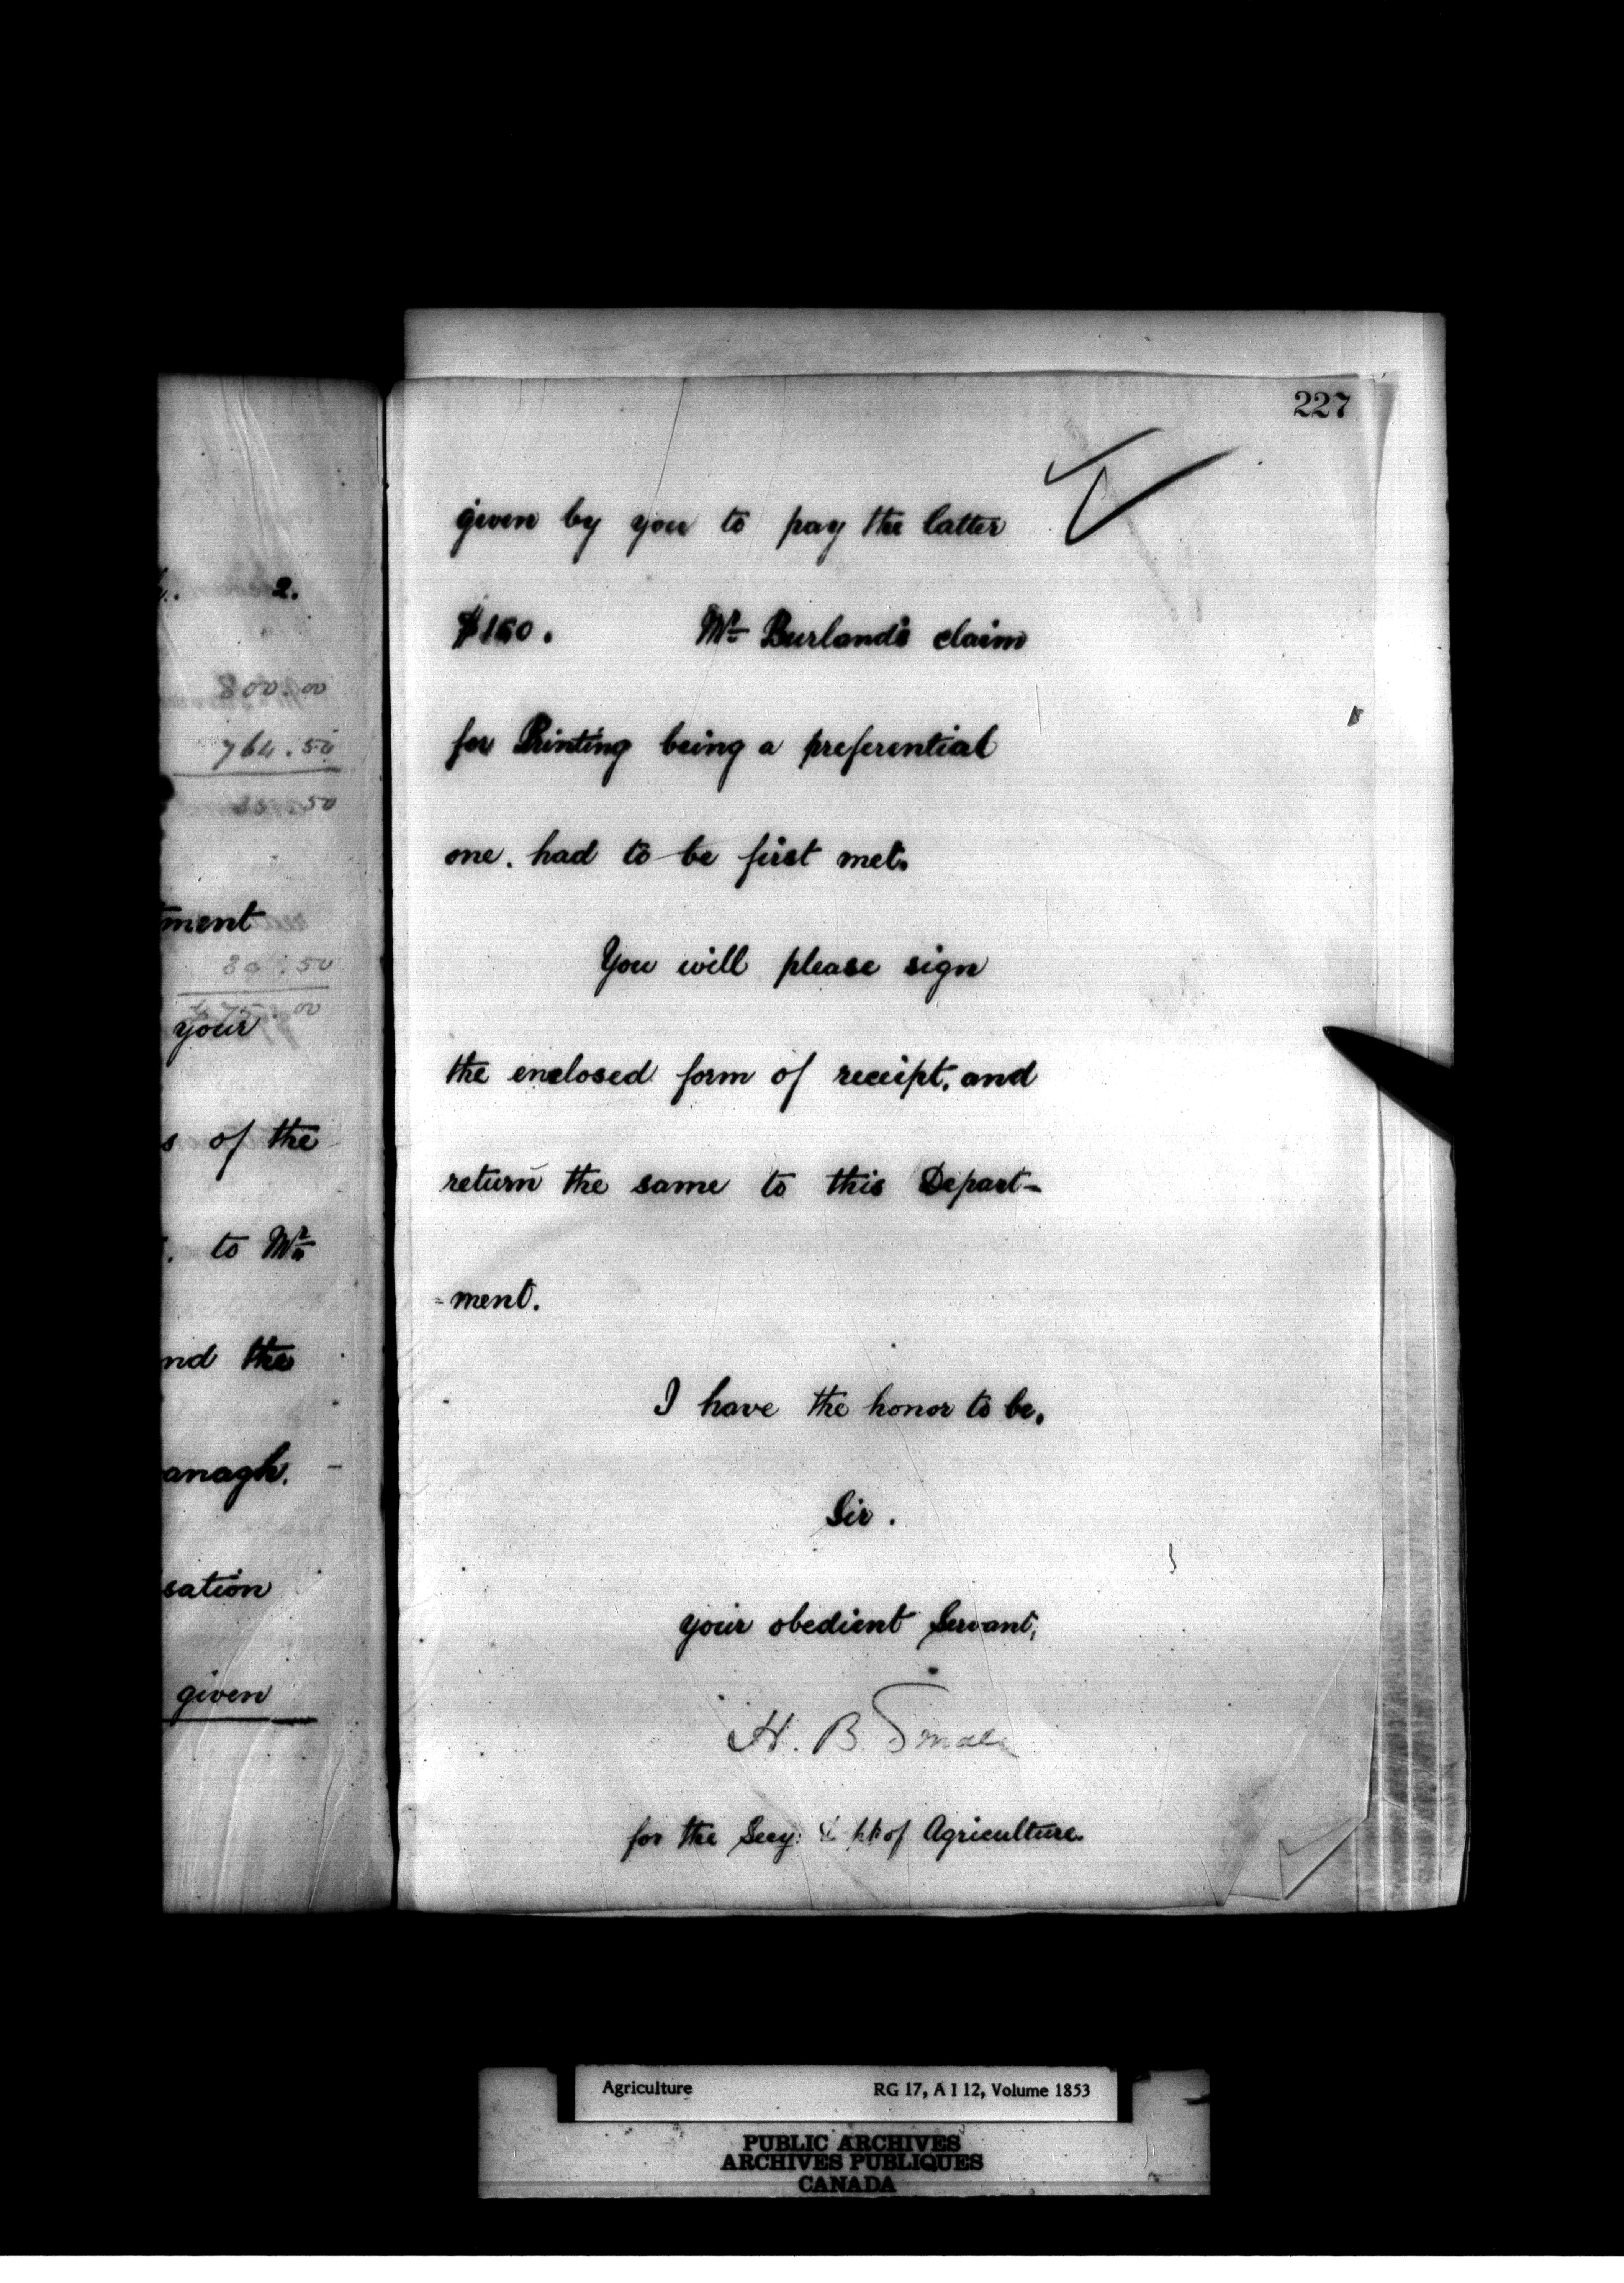 2.
800.00
764.50
50
ment
50
your
s of the
to Mr
nd the
anagh.
sation
given
227
given by you to pay the latter
$150. Mr Burland's claim
for Printing being a preferential
one. had to be first met.
You will please sign
the enclosed form of receipt, and
return the same to this Depart-
-ment.
I have the honor to be.
Sir.
your obedient Servant,
H. B. Small
for the Secy: of Agriculture.
Agriculture RG 17, A I 12, Volume 1853
PUBLIC ARCHIVES
ARCHIVES PUBLIQUES
CANADA